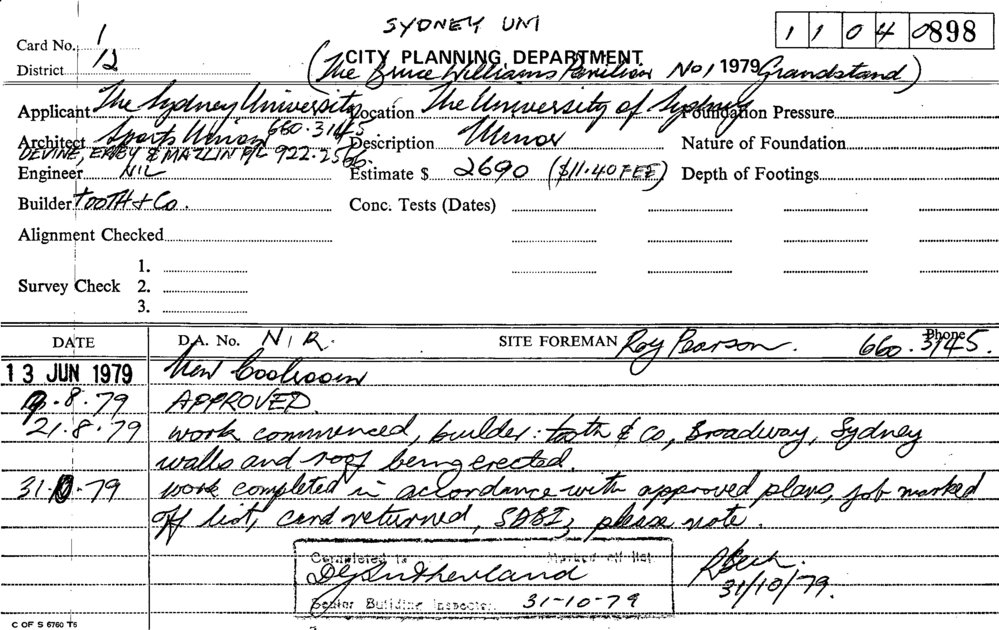 SYDNEY UNI
11040898
Card No. 1
District 12
CITY PLANNING DEPARTMENT
(The Bruce Williams Pavilion No 1 1979 Grandstand)
Applicant The Sydney University Location The University of Sydney Foundation Pressure
Architect Sports Union 660.3145 Description Minor Nature of Foundation
DEVINE, ERBY & MAZLIN P/L 922.2566.
Engineer NIL Estimate $ 2690 ($11.40 FEE) Depth of Footings
Builder TOOTH & Co. Conc. Tests (Dates)
Alignment Checked
Survey Check 1.
2.
3.
DATE D.A. No. N/R. SITE FOREMAN Roy Pearson. Phone 660.3145.
13 JUN 1979 New Coolroom
.8.79 APPROVED.
21.8.79 work commenced, builder: tooth & Co, Broadway, Sydney
walls and roof being erected.
31.10.79 work completed in accordance with approved plans, job marked
off list, card returned, SDBI, please note.
Completed to Marked off list
DG Sutherland
Senior Building Inspector. 31-10-79
31/10/79.
C OF S 6760 T5